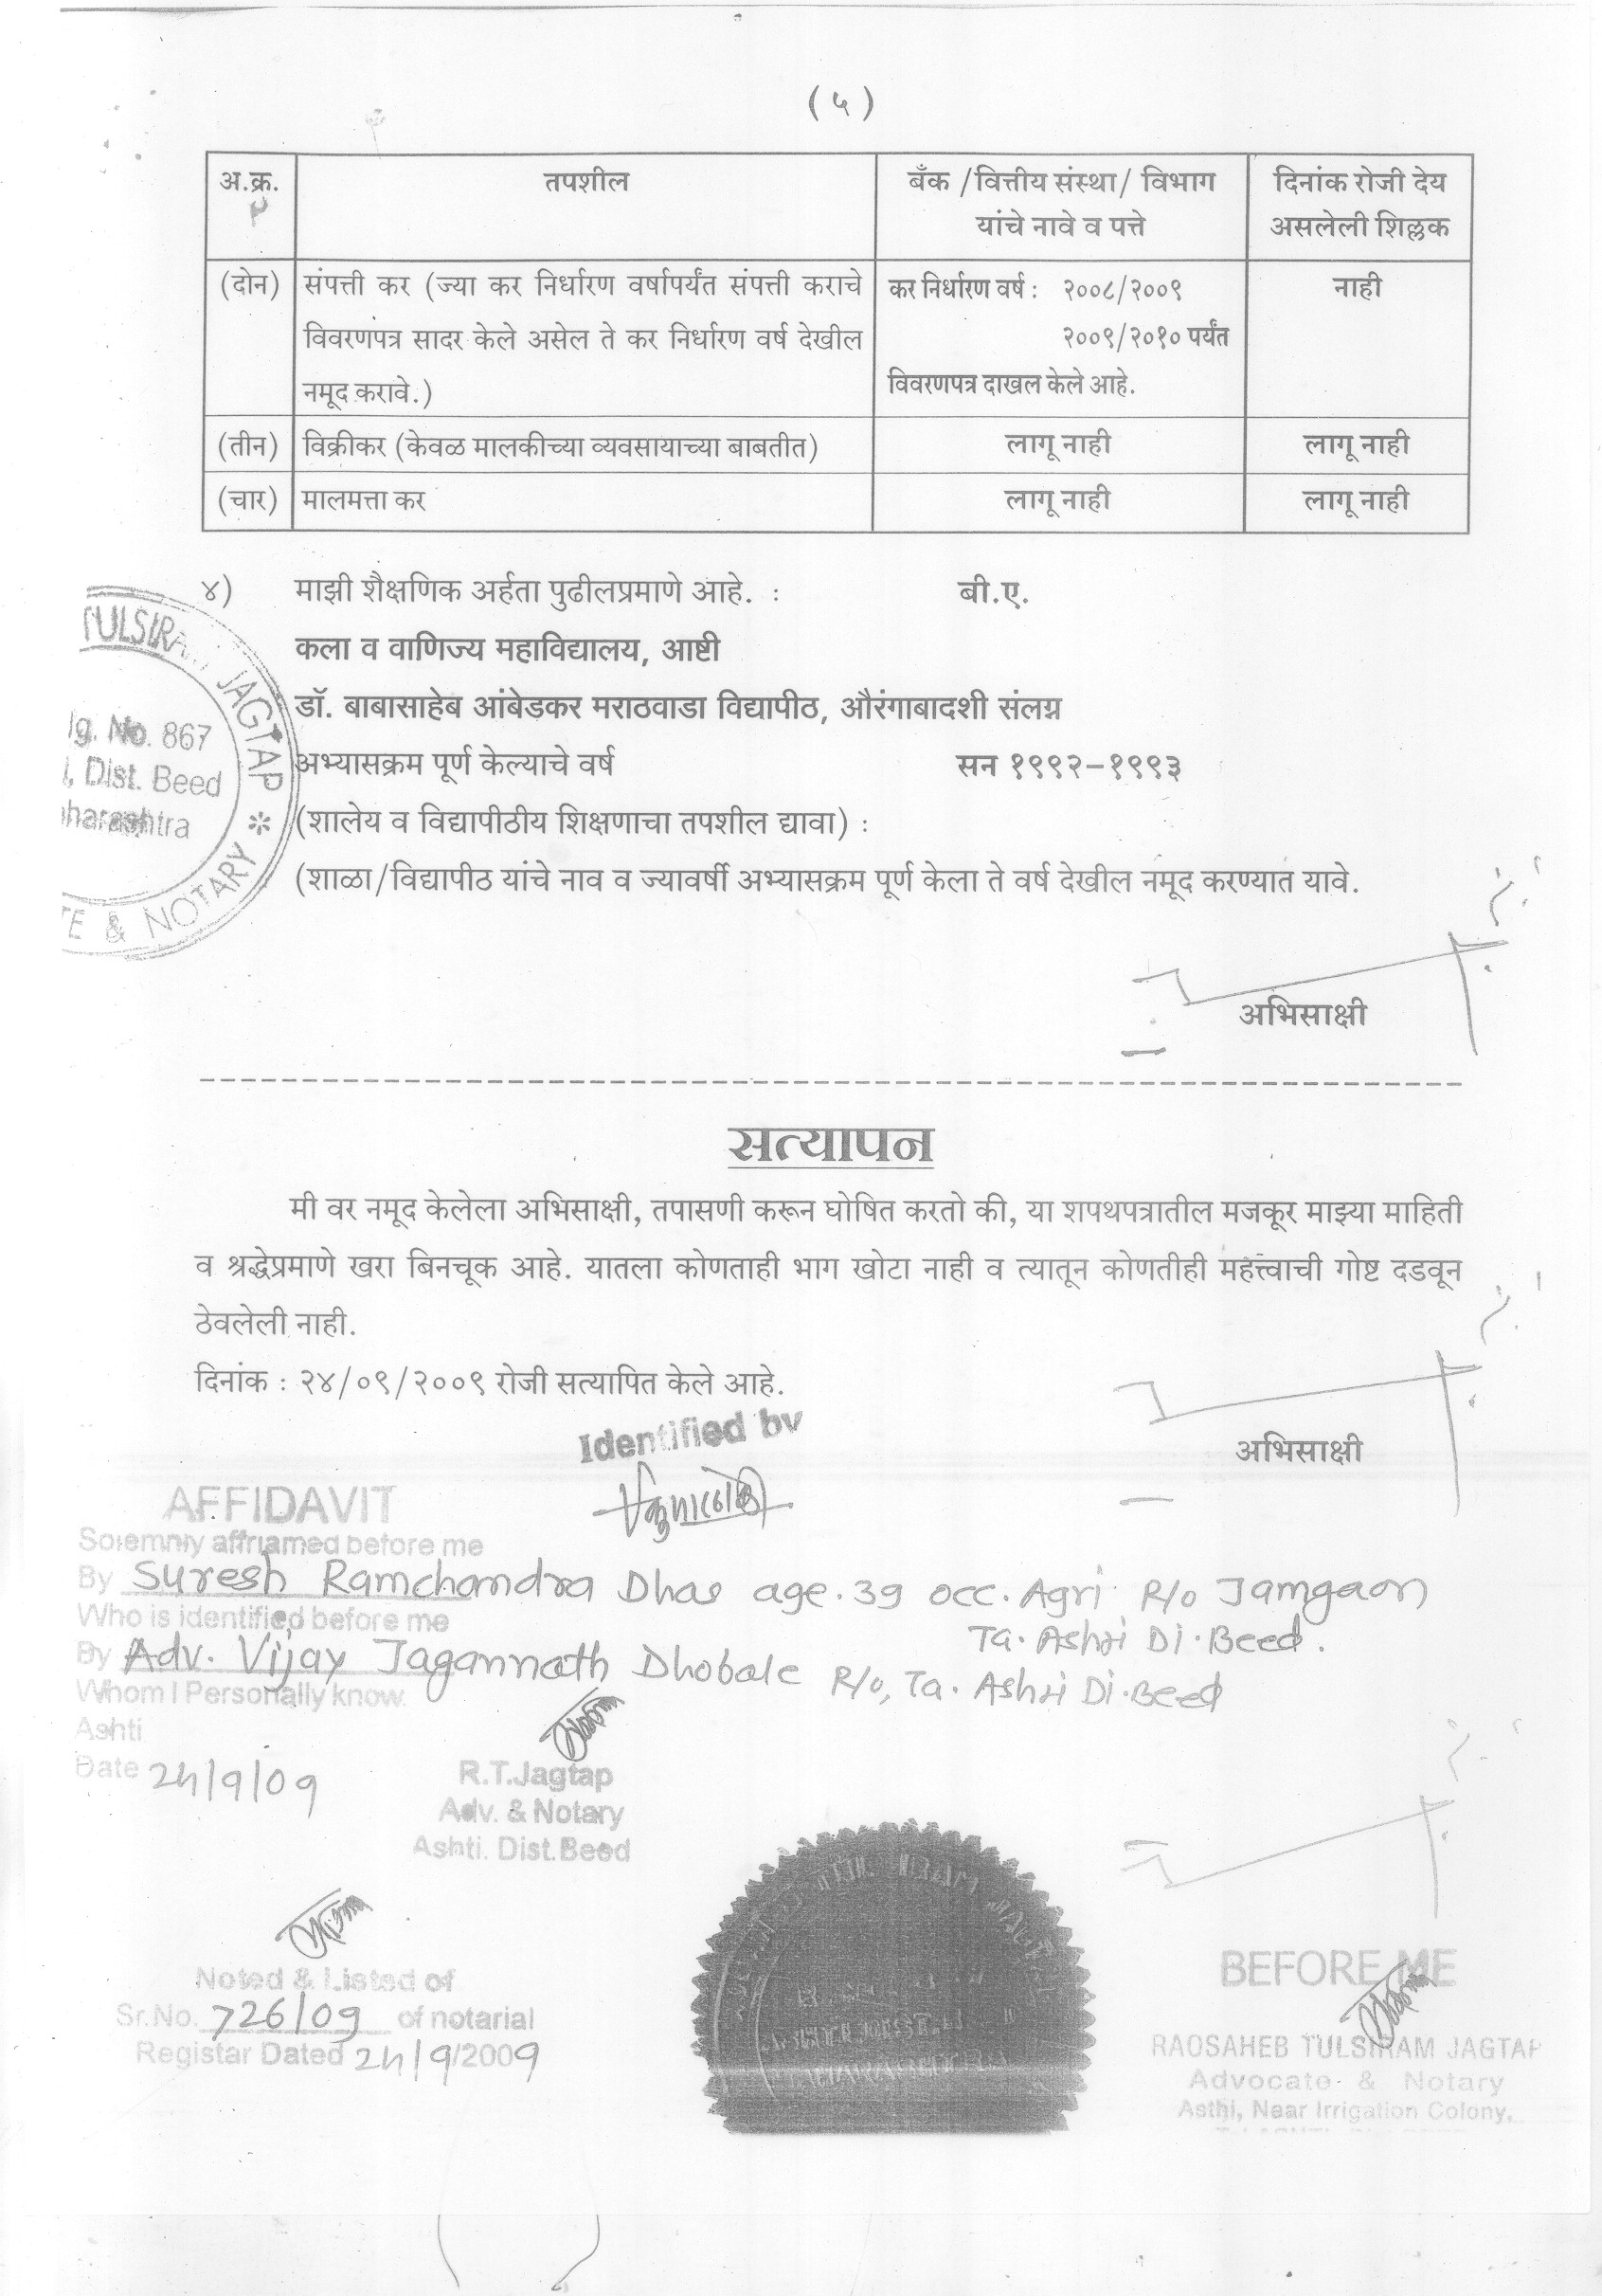 (५)
अ.क्र. तपशील बँक /वित्तीय संस्था/ विभाग यांचे नावे व पत्ते दिनांक रोजी देय असलेली शिल्लक
(दोन) संपत्ती कर (ज्या कर निर्धारण वर्षापर्यंत संपत्ती कराचे कर निर्धारण वर्ष : २००८/२००९ नाही
विवरणपत्र सादर केले असेल ते कर निर्धारण वर्ष देखील २००९/२०१० पर्यंत
नमूद करावे.) विवरणपत्र दाखल केले आहे.
(तीन) विक्रीकर (केवळ मालकीच्या व्यवसायाच्या बाबतीत) लागू नाही लागू नाही
(चार) मालमत्ता कर लागू नाही लागू नाही
४) माझी शैक्षणिक अर्हता पुढीलप्रमाणे आहे. : बी.ए.
कला व वाणिज्य महाविद्यालय, आष्टी
डॉ. बाबासाहेब आंबेडकर मराठवाडा विद्यापीठ, औरंगाबादशी संलग्न
अभ्यासक्रम पूर्ण केल्याचे वर्ष सन १९९२-१९९३
(शालेय व विद्यापीठीय शिक्षणाचा तपशील द्यावा) :
(शाळा/विद्यापीठ यांचे नाव व ज्यावर्षी अभ्यासक्रम पूर्ण केला ते वर्ष देखील नमूद करण्यात यावे.
TULSIRAM JAGTAP * NOTARY &
No. 867
Dist. Beed
अभिसाक्षी
सत्यापन
मी वर नमूद केलेला अभिसाक्षी, तपासणी करून घोषित करतो की, या शपथपत्रातील मजकूर माझ्या माहिती
व श्रद्धेप्रमाणे खरा बिनचूक आहे. यातला कोणताही भाग खोटा नाही व त्यातून कोणतीही महत्त्वाची गोष्ट दडवून
ठेवलेली नाही.
दिनांक : २४/०९/२००९ रोजी सत्यापित केले आहे.
Identified by
अभिसाक्षी
AFFIDAVIT
Solemnly affriamed before me
By Suresh Ramchandra Dhas age. 39 occ. Agri R/o Jamgaon
Ta. Ashti Di. Beed.
Who is identified before me
By Adv. Vijay Jagannath Dhobale R/o, Ta. Ashti Di. Beed
Whom I Personally know.
Ashti
Date 24/9/09
R.T.Jagtap
Adv. & Notary
Ashti. Dist.Beed
Noted & Listed of
Sr.No. 726/09 of notarial
Registar Dated 24/9/2009
BEFORE ME
RAOSAHEB TULSIRAM JAGTAP
Advocate & Notary
Asthi, Near Irrigation Colony,